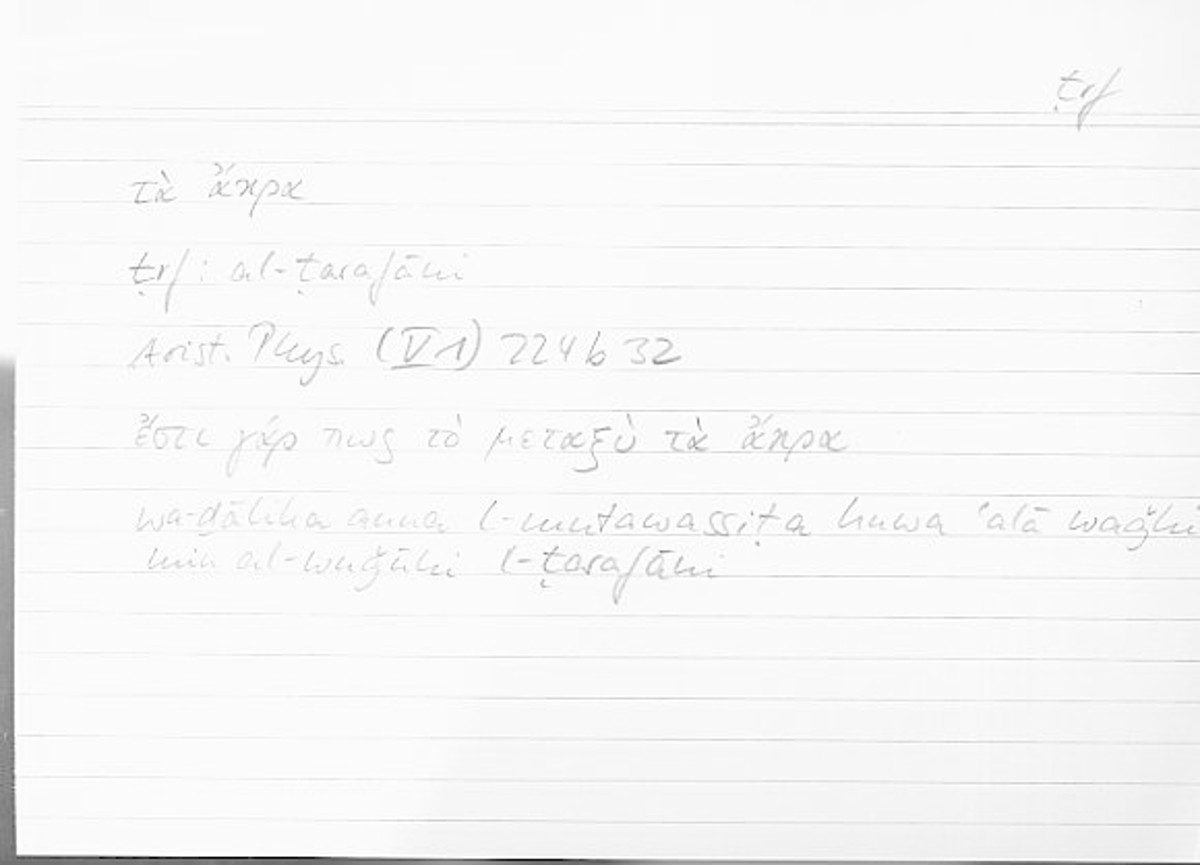 ṭrf
τὰ ἄκρα
ṭrf : al-ṭarafāni
Arist. Phys. (V 1) 224 b 32
ἔστι γάρ πως τὸ μεταξὺ τὰ ἄκρα
wa-ḏālika anna l-mutawassiṭa huwa ʿalā waǧhi
min al-wuǧūhi l-ṭarafāni